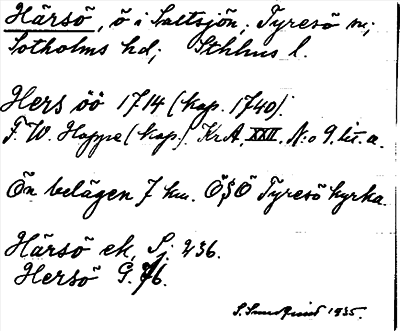 Härsö, ö i Saltsjön; Tyresö sn;
Sotholms hd; Sthlms l.
Hers öö 1714 (kop. 1740).
F. W. Hoppe (kop.). Kr.A. XXII. N:o 9. lit. a.
Ön belägen 7 km. ÖSÖ Tyresö kyrka.
Härsö ek. Sj. 236.
Hersö G. 76.
S. Sundquist 1935.